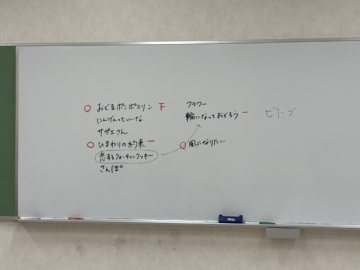 ○ おどるポンポコリン 下
にんげんっていいな
サザエさん
○ ひまわりの約束 ー
恋するフォーチュンクッキー
さんぽ
フラワー
輪になっておどろう ー
○ 風になりたい
ビリーブ